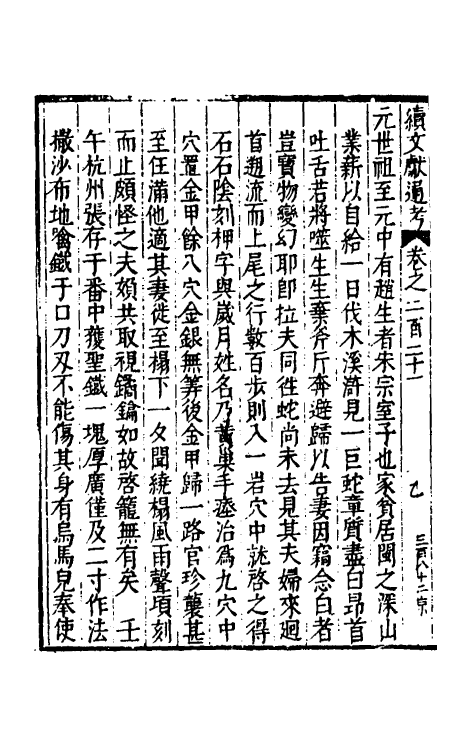 續文獻通考 卷之二百二十一
元世祖至元中有趙生者宋宗室子也家貧居閩之深山
業薪以自給一日伐木溪滸見一巨蛇章質盡白昂首
吐舌若將噬生生棄斧斤奔避歸以告妻因竊念白者
豈寶物變幻耶即拉夫同徃蛇尚未去見其夫婦來廻
首遡流而上尾之行數百步則入一岩穴中就啓之得
石石陰刻押字與歲月姓名乃黃巢手瘞治為九穴中
穴置金甲餘八穴金銀無筭後金甲歸一路官珍襲甚
至任滿他適其妻徙至榻下一夕聞繞榻風雨聲頃刻
而止頗怪之夫婦共取視鐍鑰如故啓籠無有矣 壬
午杭州張存于番中獲聖鐵一塊厚廣僅及二寸作法
撒沙布地噙鐵于口刀刃不能傷其身有烏馬兒奉使